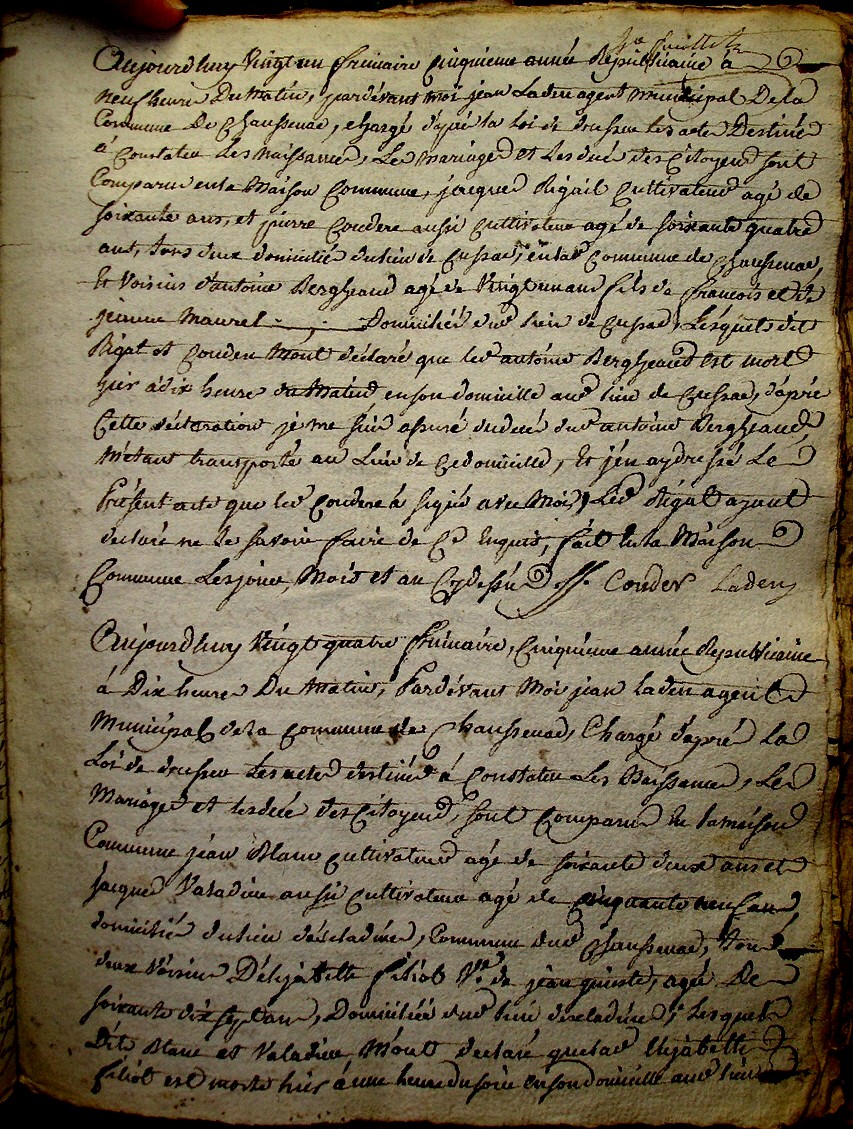 3e feuillet
Aujourdhuy vingt un frimaire cinquieme année Republicaine à
neuf heures Du Matin, pardévant moi jean Laden agent municipal De la
Commune De Chaussenac, chargé d'aprés la Loi de dresser les actes Destinés
a Constater Les Naissances, Les Mariages et Les décés des Citoyens sont
Comparus en la Maison Commune, jacques Rigail Cultivateur agé de
soixante ans, et pierre Couderc aussi Cultivateur agé de soixante quatre
ans, tous deux domiciliés du lieu de Cussac, en lad Commune de Chaussenac,
Et Voisins d'antoine Bergheaud agé de Vingt un ans fils de francois et de
jeanne Maurel Domicilié dud lieu de Cussac, Lesquels dit
Rigal et Couderc M'ont déclaré que led antoine Bergheaud est mort
hier à dix heures du Matin en son domicille aud lieu de Cussac, d'aprés
Cette déclaration je me suis assuré du décés dud antoine Bergheaud,
M'étant transporté au Lieu de Ce domicille, Et j'en ay dressé Le
Présent acte que led Couderc à signé avec Moi, Led Rigal ayant
declaré ne Le savoir faire de Ce Enquis, fait En la Maison
Commune Les jour, Mois et an Cy dessus Couder Laden
Aujourdhuy Vingt quatre frimaire, Cinquieme année Republicaine
à Dix heures Du Matin, Pardévant Moi jean Laden agent
Municipal de la Commune de Chaussenac, Chargé d'aprés La
Loi de dresser Les actes destinés à Constater Les Naissances, Les
Mariages et les décés des Citoyens, sont Comparus En la maison
Commune jean Blanc Cultivateur agé de soixante deux ans et
jacques Valadieu aussi Cultivateur agé de Cinquante neuf ans
domiciliés du lieu d'escladines, Commune dud Chaussenac, tous
deux Voisins D'élizabeth filiol Ve de jean, agée De
soixante dix sept ans, Domiciliée dud lieu d'escladines, Lesquels
Dits Blanc et Valadieu, M'ont declaré que lad Elizabeth
filiol est morte hier à une heure du soir en son domicille aud lieu